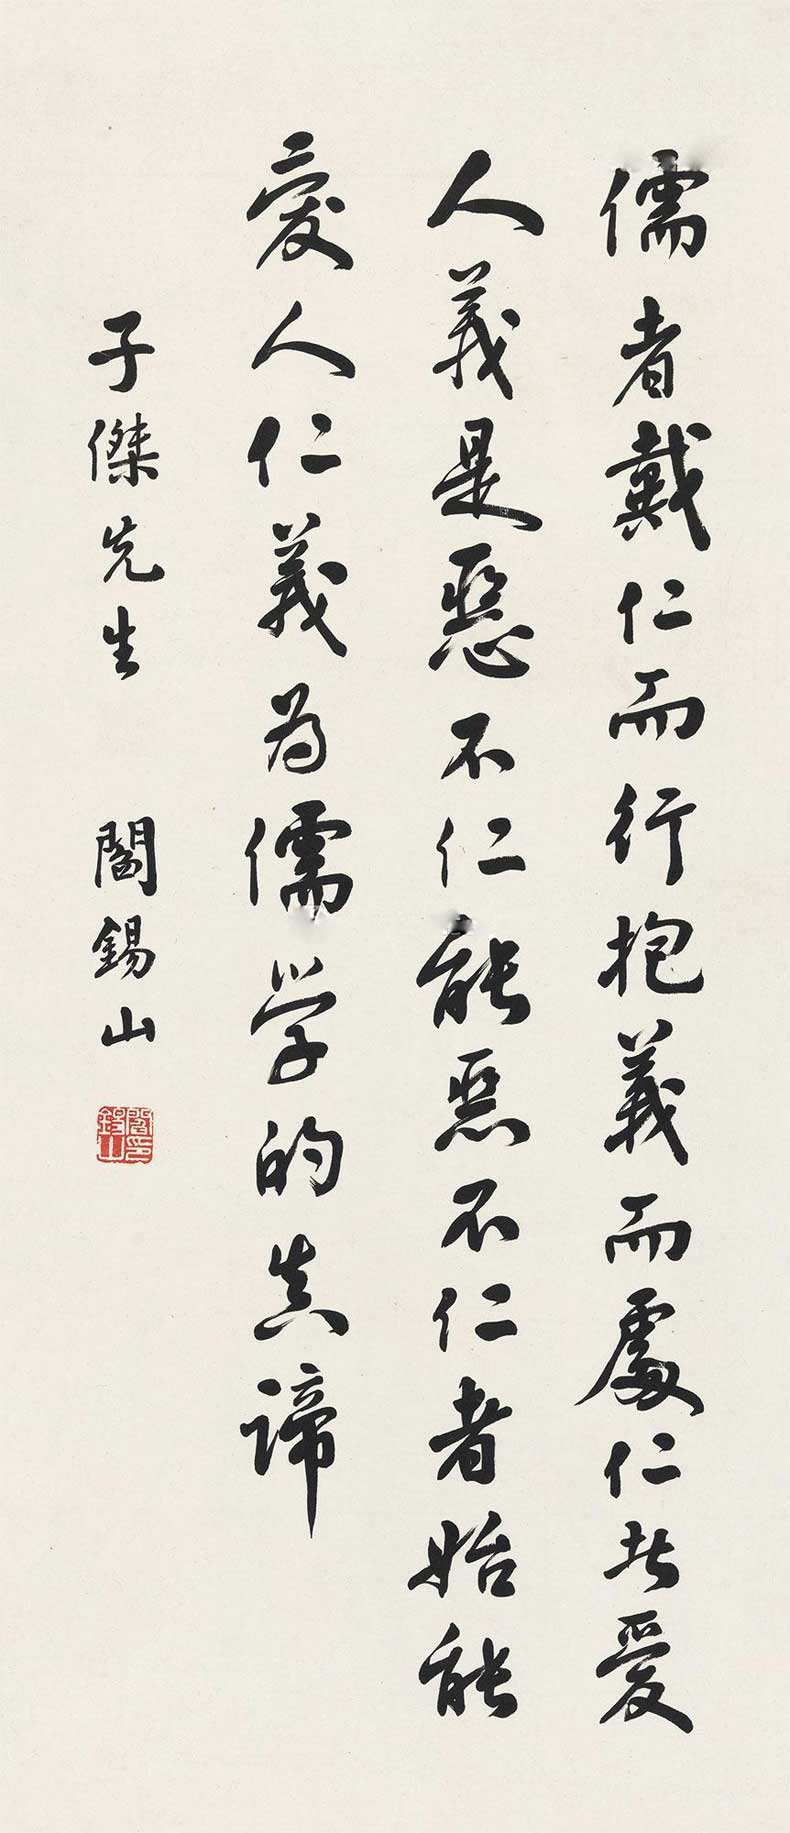 儒者戴仁而行抱義而處仁是愛
人義是惡不仁能惡不仁者始能
愛人仁義為儒学的真諦
子傑先生 閻錫山
閻錫山印